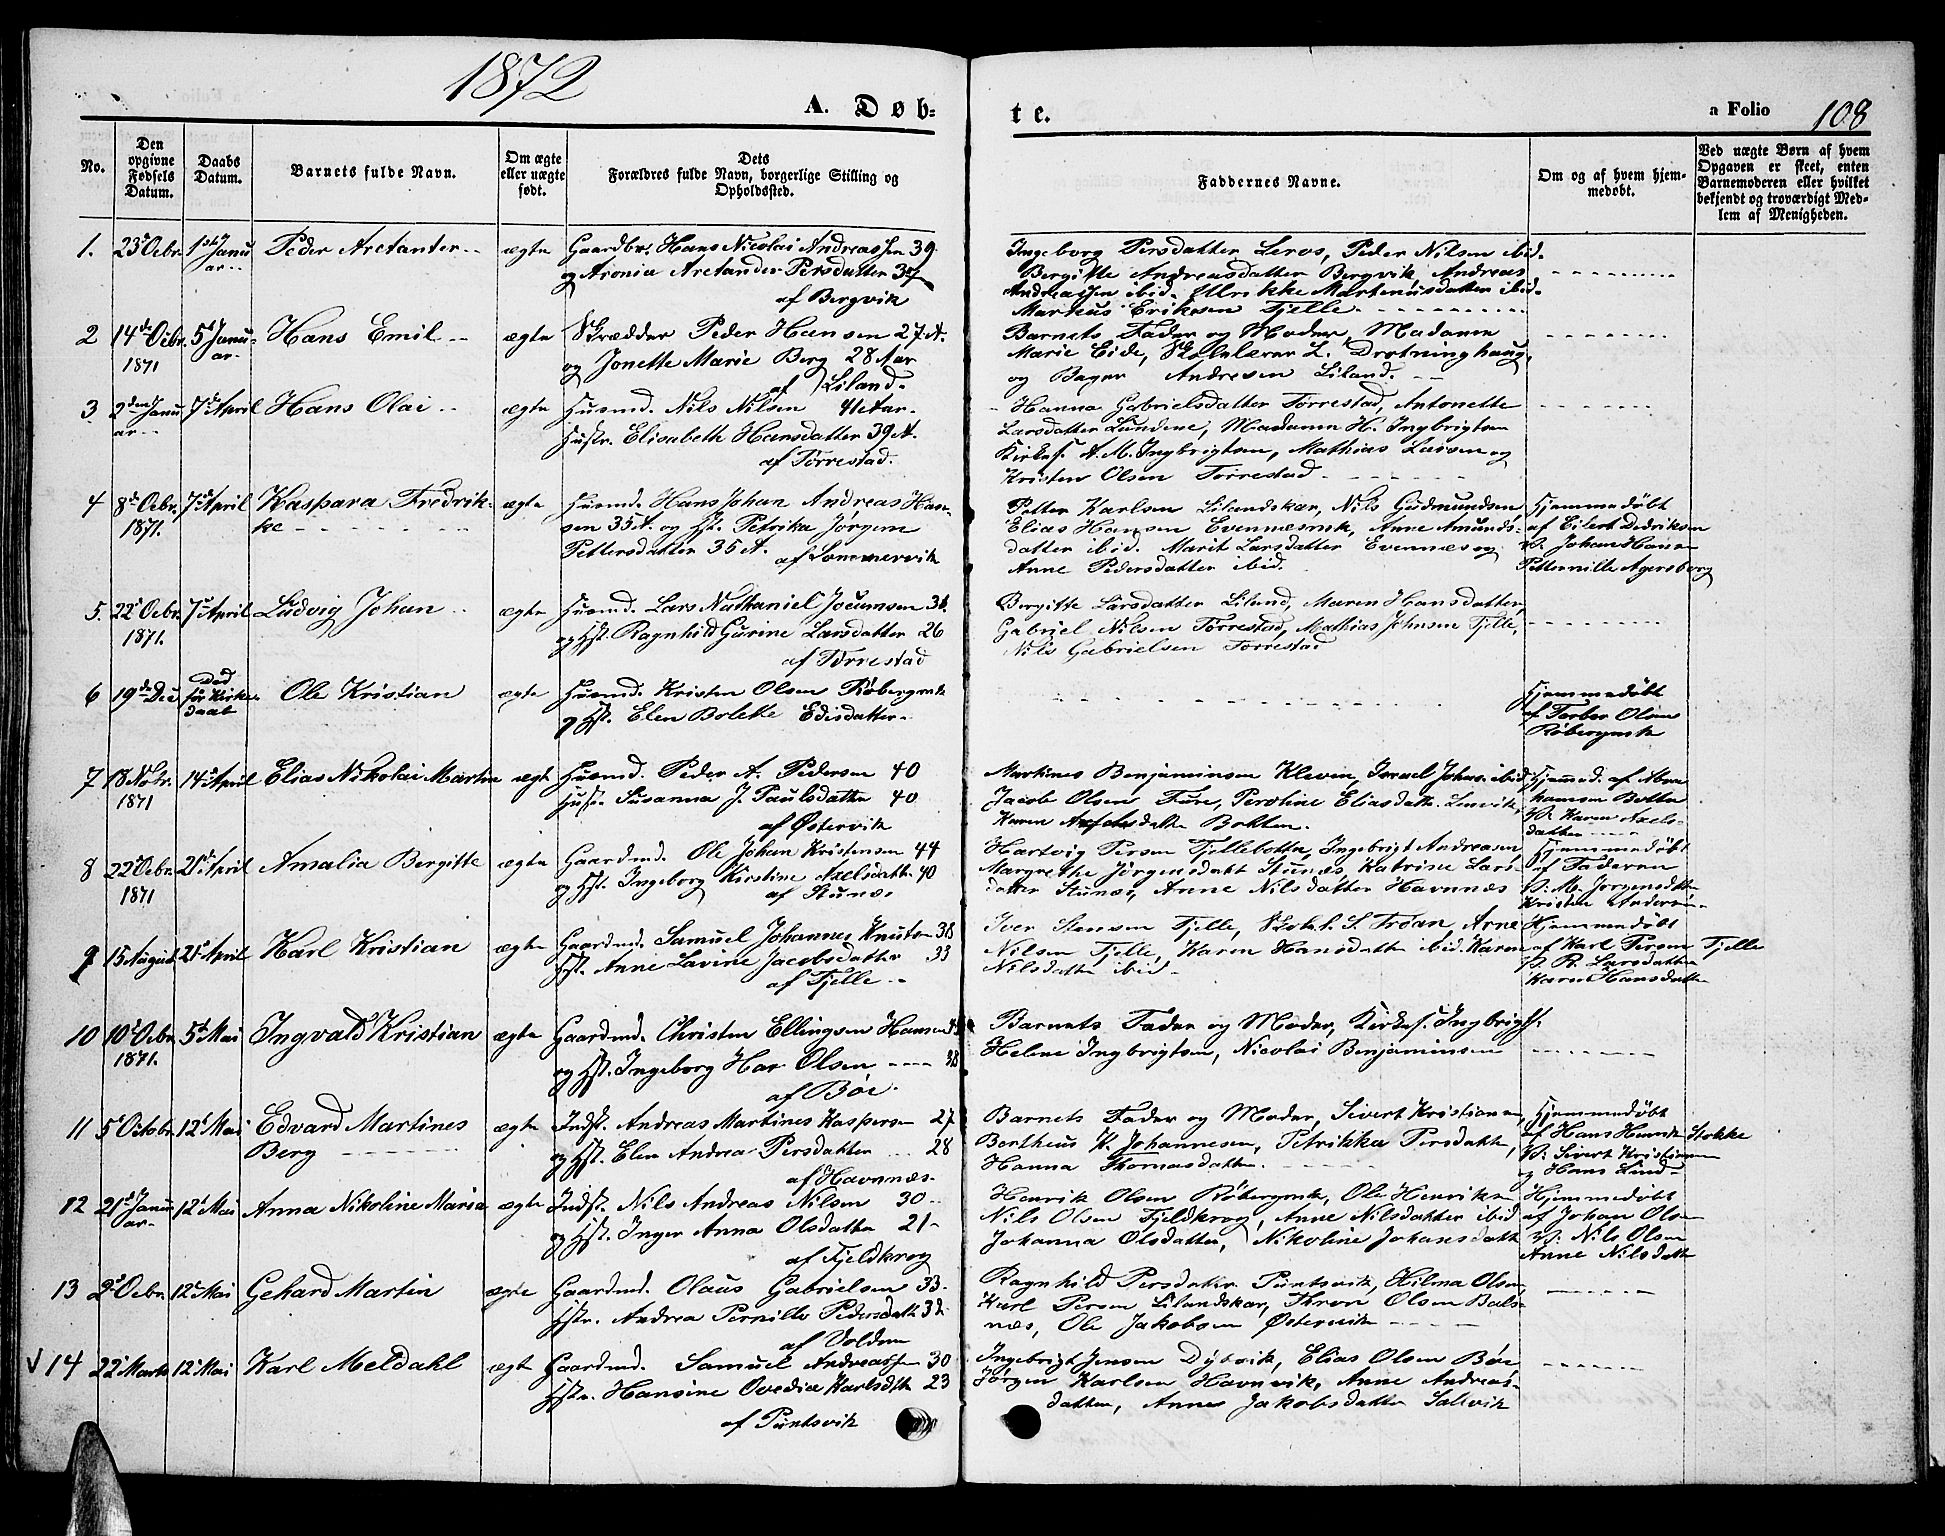 1872
A. Døb-
te.
a Folio 108
No.
Den opgivne Fødsels Datum.
Daabs Datum.
Barnets fulde Navn.
Om ægte eller uægte født.
Dets Forældres fulde Navn, borgerlige Stilling og Opholdssted.
Faddernes Navne.
Om og af hvem hjemmedøbt.
Ved uægte Børn af hvem Opgaven er skeet, enten Barnemoderen eller hvilket bekjendt og troværdigt Medlem af Menigheden.
1. 23d Octbr. 1st Januar Peder Arctander ægte Gaardbr. Hans Nicolai Andreassen 39
og Aronia Arctander Persdatter 37
af Bergvik
Ingeborg Persdatter Leros, Peder Nilsen ibid.
Bergitte Andreasdatter Bergvik, Andreas
Andreassen ibid. Ulrikke Martinusdatter ibid.
Markus Eriksen Fjelle.
2 14de Octbr. 1871 5t Januar Hans Emil ægte Skrædder Peder Hansen 27 A.
og Jonette Marie Berg 28 Aar
af Liland.
Barnets Fader og Moder, Madame
Marie Eide, Skolelærer L. Drotninghaug,
og Bager Andresen Liland.
3 2den Januar 7de April Hans Olai ægte Husmd. Nils Nilsen 41 Aar.
Hustr. Elisabeth Hansdatter 39 A.
af Torrestad.
Hanna Gabrielsdatter Torrestad, Antonette
Larsdatter Lundene, Madame H. Ingbrigtsen
Kirkes. A. M. Ingbrigtsen, Mathias Larsen og
Kristen Olsen Torrestad
4 8de Octbr. 1871. 7de April Kaspara Fredrik-
ke ægte Husmd. Hans Johan Andreas Han-
sen 35 A. og Hst. Petrika Jørgine
Pettersdatter 35 A. af Sommervik
Petter Karlsen Lilandskar, Nils Gudmundsen
Elias Hansen Evennæsmk, Anne Amunds-
datter ibid. Marit Larsdatter Evennæs og
Anne Pedersdatter ibid.
Hjemmedøbt
af Eilert Didriksen
V. Johan Hansen
Petternille Agersborg
5. 22d Octbr. 1871. 7de April Ludvig Johan ægte Husmd. Lars Nathaniel Jocumsen 31.
og Hst. Ragnhild Gurine Larsdatter 26
af Torrestad
Bergitte Larsdatter Liland, Maren Hansdatter,
Gabriel Nilsen Torrestad, Mathias Johnsen Fjelle,
Nils Gabrielsen Torrestad
6 19de Dec Død før Kirkedaab Ole Kristian ægte Husmd. Kristen Olsen Røbergmk
og Hst. Elen Bolette Edisdatter
Hjemmedøbt
af Torber Olsen
Røbergmrk
7 18 Nobr. 1871 14de April Elias Nikolai Martin ægt Husmd. Peder A. Pedersen 40
Hust. Susanna J. Paulsdatter 40
af Østervik
Martines Benjaminsen Kleven, Israel Johns. ibid
Jacob Olsen Fure, Peroline Eliasdatt. Lenvik,
Karen Axelsdatter Botten.
Hjemmed. af Abra-
hamsen Botten
V. Karen Axels-
datter
8 22d Octbr. 1871 21de April Amalia Bergitte ægte Gaardmd. Ole Johan Kristensen 44
og Hst. Ingeborg Kirstine Axelsdatter 40
af Stunæs
Hartvig Persen Fjellebotten, Ingebrigt Andreasen,
Margrethe Jörgensdatt Stunæs, Katrine Lars-
datter Stunæs, Anne Nilsdatter Havnnæs
Hjemmedøbt
af Faderen
V. M. Jørgensdatter
Kristen Andersen
9 15 August 21de April Karl Kristian ægte Gaardmd. Samuel Johannes Knutsen 38
Hst. Anne Lavine Jacobsdatter 33
af Fjelle
Iver Stensen Fjelle, Skolel. S. Troan, Arne
Nilsen Fjelle, Karen Hansdatter ibid. Karen
Nilsdatter ibid
Hjemmedøbt
af Karl Persen Fjelle
V. R. Larsdatter
Karen Hansdatter
10 10d Octbr 1871. 5te Mai Ingvald Kristian ægte Gaardmd. Christen Ellingsen Hansen
og Hst. Ingeborg Har. Olsen 38
af Bøe.
Barnets Fader og Moder, Kirkes. Ingbrigts.
Helene Ingbrigtsen, Nicolai Benjaminsen
11 5d Octobr 12d Mai Edvard Martines
Berg ægte Indst. Andreas Martines Kaspersen 27
og Hst. Elen Andrea Persdatter 28
af Havnnæs.
Barnets Fader og Moder, Sivert Kristiansen,
Bertheus K. Johannesen, Petrikka Persdatter,
Hanna Thomasdatter.
Hjemmedøbt
af Hans Henrik Stokke
V. Sivert Kristiansen
og Hans Lind
12 21d Januar 12d Mai Anna Nikoline Maria ægte Indst. Nils Andreas Nilsen 30
og Hst. Inger Anna Olsdatter 21
af Fjeldkrog
Henrik Olsen Røbergmrk, Ole Henriksen
Nils Olsen Fjeldkrog, Anne Nilsdatter ibid
Johanna Olsdatter, Nikoline Johansdatt
Hjemmedøbt
af Johan Olsen
V. Nils Olsen
Anne Nilsdatter
13 2d Octbr. 12d Mai Gehard Martin ægte Gaardmd. Olaus Gabrielsen 33
Hstr. Andrea Pernille Pedersdatt 32
af Volden
Ragnhild Persdatter Puntsvik, Hilma Olsen,
Karl Persen Lilandskar, Thron Olsen Bals-
næs, Ole Jakobsen Østervik
V 14 22d Marts 12d Mai Karl Meldahl ægte Gaardmd. Samuel Andreassen 30
Hstr. Hansine Ovedia Karlsdtr 23
af Puntsvik
Ingebrigt Jensen Dybvik, Elias Olsen Bøe
Jørgen Karlsen Havnvik, Anne Andreas-
datter, Anne Jakobsdatter Salvik